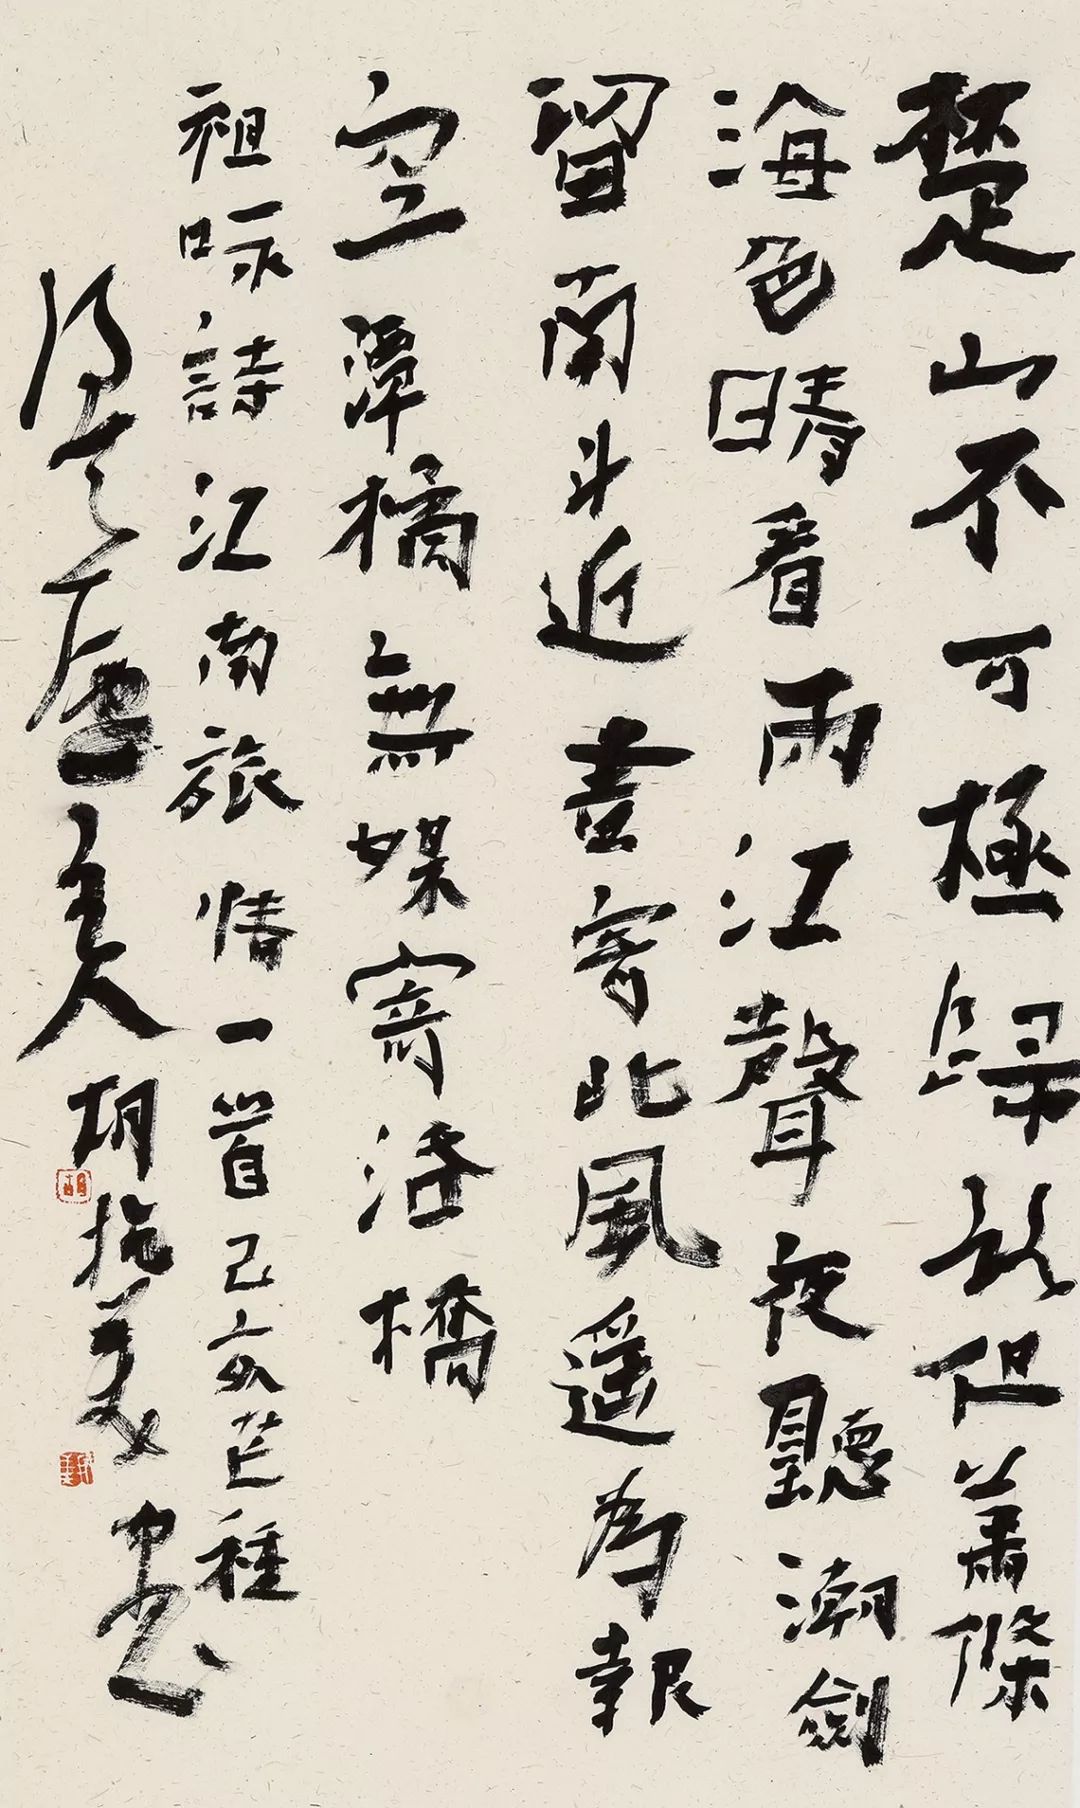 楚山不可極歸路但蕭條
海色晴看雨江聲夜聽潮劍
留南斗近書寄北風遙為報
空潭橘無媒寄洛橋
祖咏詩江南旅情一首己亥芒種
主人胡抗美書
胡